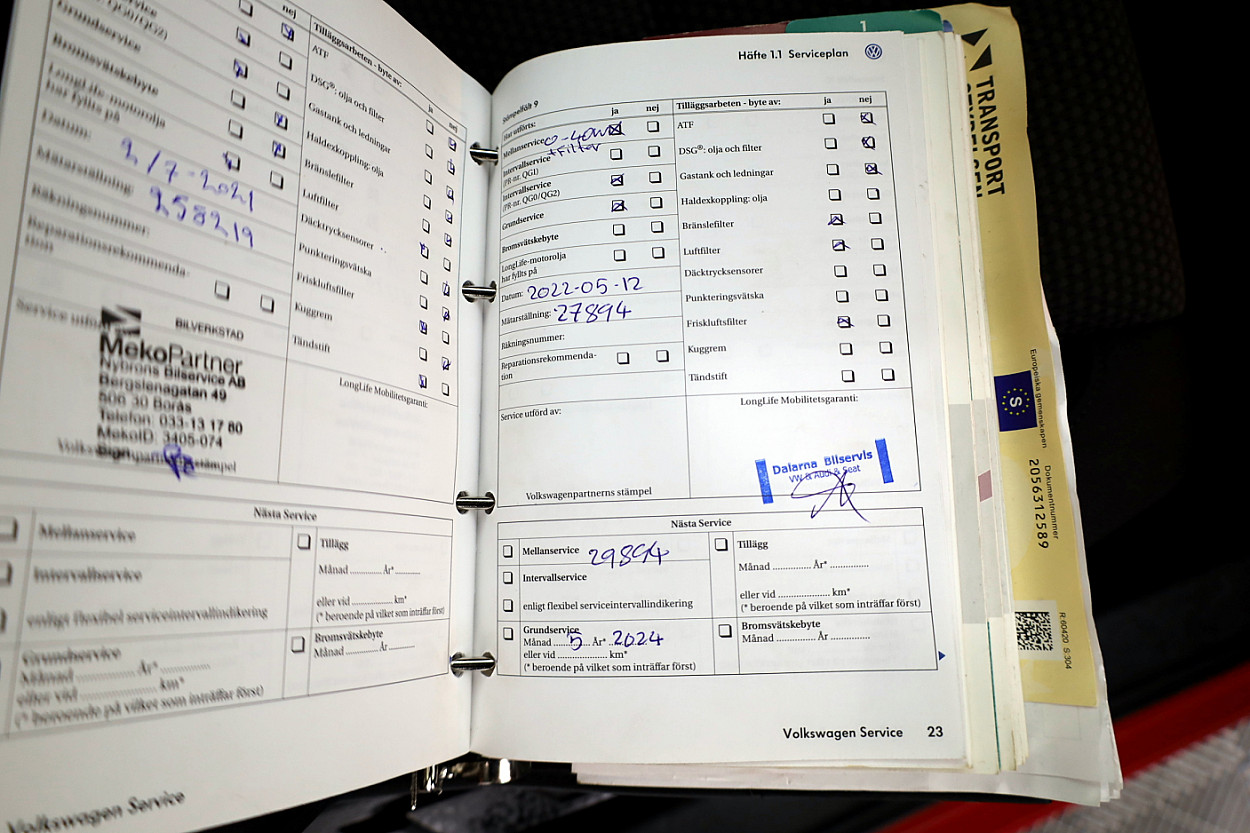 nej
Tilläggsarbeten - byte av:
ja
nej
Grundservice
Bromsvätskebyte
LongLife-motorolja
har fyllts på
Datum:
2/7-2021
Mätarställning:
258219
Räkningsnummer:
Reparationsrekommenda-
tion
ATF
DSG®: olja och filter
Gastank och ledningar
Haldexkoppling: olja
Bränslefilter
Luftfilter
Däcktrycksensorer
Punkteringsvätska
Friskluftsfilter
Kuggrem
Tändstift
LongLife Mobilitetsgaranti:
BILVERKSTAD
MekoPartner
Nybrons Bilservice AB
Bergslenagatan 49
506 30 Borås
Telefon: 033-13 17 80
MekoID: 3405-074
Nästa Service
Mellanservice
Intervallservice
enligt flexibel serviceintervallindikering
Grundservice
Månad ............ År* ............
eller vid .................... km*
(* beroende på vilket som inträffar först)
Tillägg
Månad ............ År* ............
eller vid .................... km*
(* beroende på vilket som inträffar först)
Bromsvätskebyte
Månad ............ År ............
Volkswagen Service
Häfte 1.1 Serviceplan
Stämpelfält 9
Har utförts:
ja
nej
Mellanservice 0-40W
+Filter
Intervallservice
(PR-nr. QG1)
Intervallservice
(PR-nr. QG0/QG2)
Grundservice
Bromsvätskebyte
LongLife-motorolja
har fyllts på
Datum: 2022-05-12
Mätarställning: 27894
Räkningsnummer:
Reparationsrekommenda-
tion
Service utförd av:
Volkswagenpartnerns stämpel
Tilläggsarbeten - byte av:
ja
nej
ATF
DSG®: olja och filter
Gastank och ledningar
Haldexkoppling: olja
Bränslefilter
Luftfilter
Däcktrycksensorer
Punkteringsvätska
Friskluftsfilter
Kuggrem
Tändstift
LongLife Mobilitetsgaranti:
Dalarna Bilservis
VW & Audi & Seat
Nästa Service
Mellanservice 29894
Intervallservice
enligt flexibel serviceintervallindikering
Grundservice
Månad 5 År* 2024
eller vid .................... km*
(* beroende på vilket som inträffar först)
Tillägg
Månad ............ År* ............
eller vid .................... km*
(* beroende på vilket som inträffar först)
Bromsvätskebyte
Månad ............ År ............
Volkswagen Service 23
1
TRANSPORT
STYRELSEN
Europeiska gemenskapen
S
Dokumentnummer
2056312589
R 60420 S 304